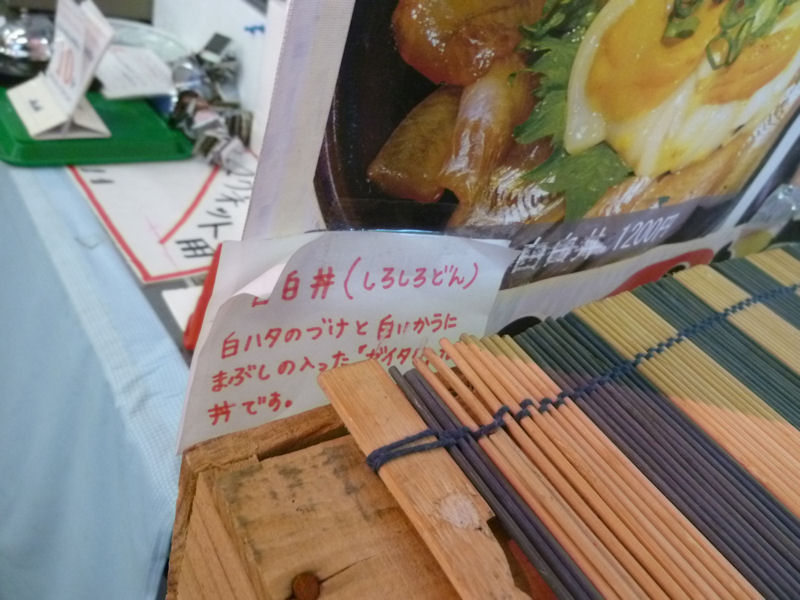 白白丼 1200円
白白丼(しろしろどん)
白ハタのづけと白いかうに
まぶしの入った「ガイタ
丼です。
リネット用